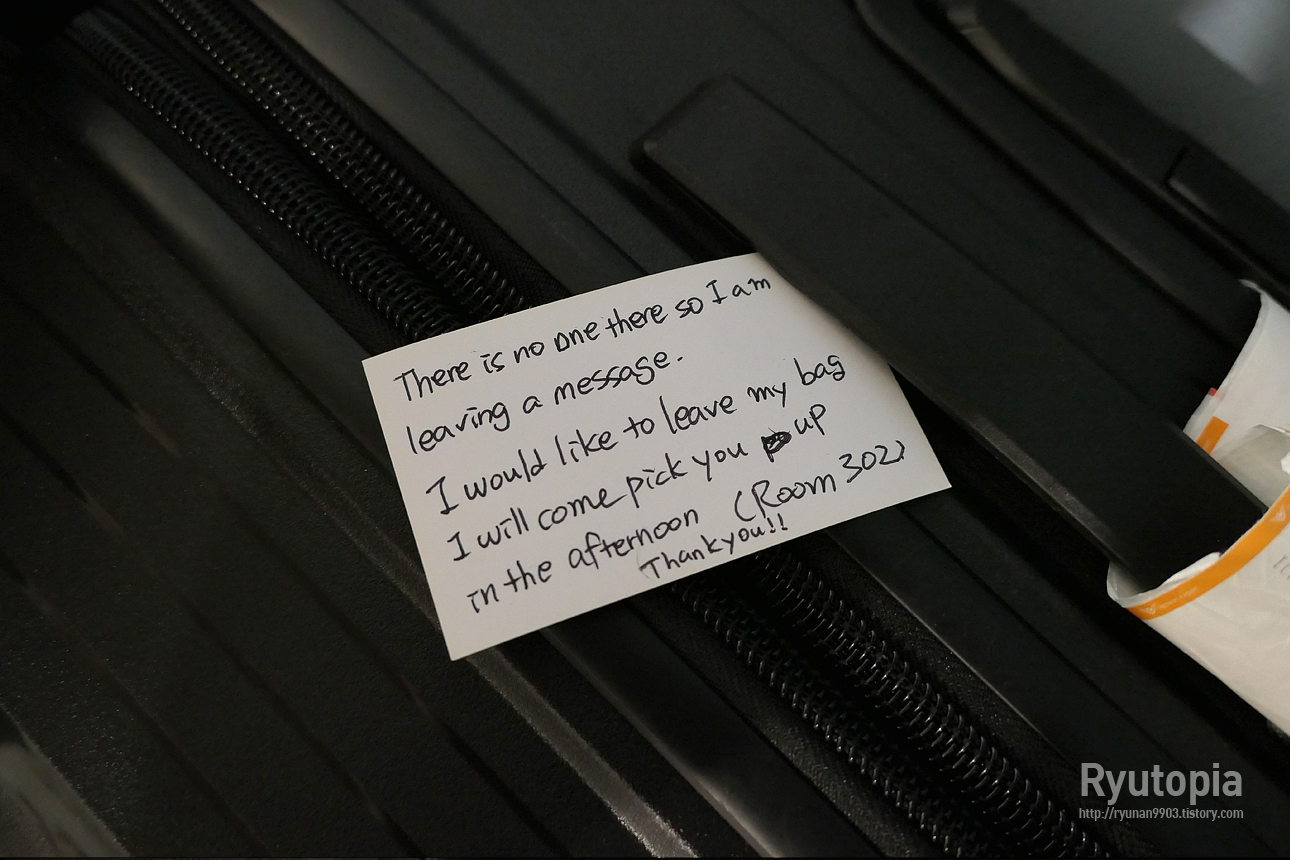 There is no one there so I am
leaving a message.
I would like to leave my bag
I will come pick you up
in the afternoon (Room 302)
Thank you!!
Ryutopia
http://ryunan9903.tistory.com